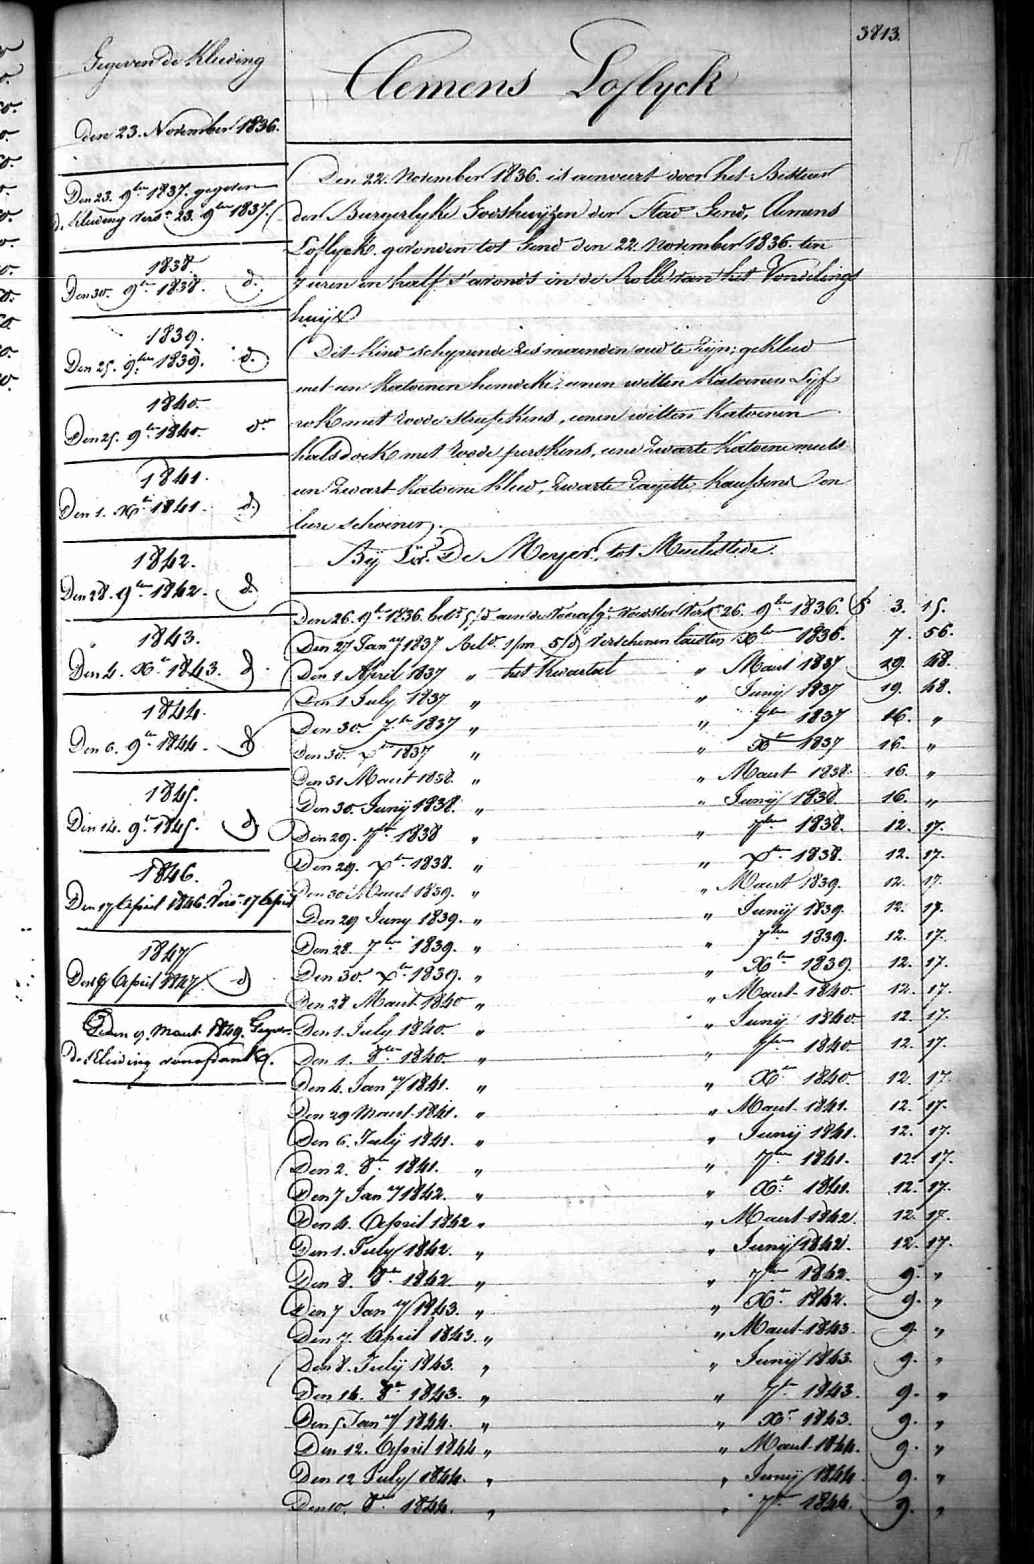 3813.
Clemens Loslyck
Gegeven de Kleeding
den 23. November 1836.
Den 23. 9ber 1837. gegeven
de kleeding vers. 23. 9ber 1837.
1838.
Den 30. 9ber 1838. d.
1839.
Den 25. 9ber 1839. d.
1840.
Den 25. 9ber 1840. do
1841.
Den 1. Xr 1841. d.
1842.
Den 28. 9ber 1842. d.
1843.
Den 4. Xr 1843. d.
1844.
Den 6. 9br 1844. d
1845.
Den 14. 9r 1845. d.
1846.
Den 17 April 1846. 17 April
1847
Den 17 April 1847 d
Den 9. Maart 1849. Gegev.
de Kleeding
Den 22. November 1836. is aenveert door het Bestier
der Burgerlyke Godshuyzen der Stad Gend, Clemens
Loslyck. gevonden tot Gend den 22. November 1836. ten
7 uren en half s'avonds in de Rolle van het Vondelings
huijs
Dit kind schynende zes maenden oud te zyn; gekleed
met een katoenen hemdeke, eenen witten katoenen Lyf
rok met roode streepkens, eenen witten katoenen
halsdoek met roode perskens, eene zwarte katoene muts
een zwart katoene kleed, zwarte zayette kaussens en
leere schoenen.
Bij De Meyer, tot Meulestede.
Den 26. 9r 1836. 26. 9ber 1836. 3. 15.
Den 27 Jany 1837 verschenen lausten Xber 1836. 7. 56.
Den 1. April 1837 " het kwartael " Maart 1837 29. 48.
Den 1 July 1837 " " Junij 1837 19. 48.
Den 30. 7br 1837 " " 7br 1837 16. "
Den 30. Xr 1837 " " Xr 1837 16. "
Den 31 Maart 1838. " " Maart 1838. 16. "
Den 30. Junij 1838. " " Junij 1838. 16. "
Den 29. 7br 1838 " " 7ber 1838. 12. 17.
Den 29. Xr 1838. " " Xr 1838. 12. 17.
Den 30 Maart 1839. " " Maart 1839. 12. 17.
Den 29 Juny 1839. " " Junij 1839. 12. 17.
Den 28. 7ber 1839. " " 7ber 1839. 12. 17.
Den 30. Xber 1839. " " Xber 1839. 12. 17.
Den 28 Maart 1840 " " Maart 1840 12. 17.
Den 1. July 1840. " " Junij 1840 12. 17.
Den 1. 8ber 1840. " " 7ber 1840 12. 17.
Den 4. Jany 1841. " " Xr 1840 12. 17
Den 29 Maart 1841. " " Maart 1841. 12. 17.
Den 6. Julij 1841. " " Junij 1841. 12. 17.
Den 2. 8br 1841. " " 7ber 1841. 12. 17.
Den 7 Jany 1842. " " Xr 1841. 12. 17.
Den 4. April 1842 " " Maart 1842. 12. 17.
Den 1. July 1842. " " Junij 1842. 12. 17.
Den 8. 8br 1842 " " 7ber 1842. 9. "
Den 7 Jany 1843. " " Xr 1842. 9. "
Den 7. April 1843. " " Maart 1843. 9. "
Den 8. Julij 1843. " " Junij 1843. 9. "
Den 16. 8br 1843. " " 7br 1843. 9. "
Den 5 Jany 1844. " " Xr 1843. 9. "
Den 12. April 1844 " " Maart 1844. 9. "
Den 12 July 1844. " " Junij 1844. 9. "
Den 10. 8br 1844. " " 7br 1844. 9. "